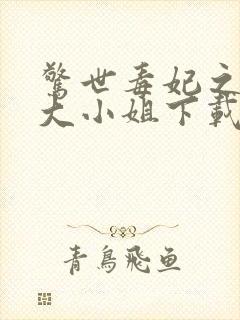 驚世毒妃之
大小姐下載
青鳥飛魚